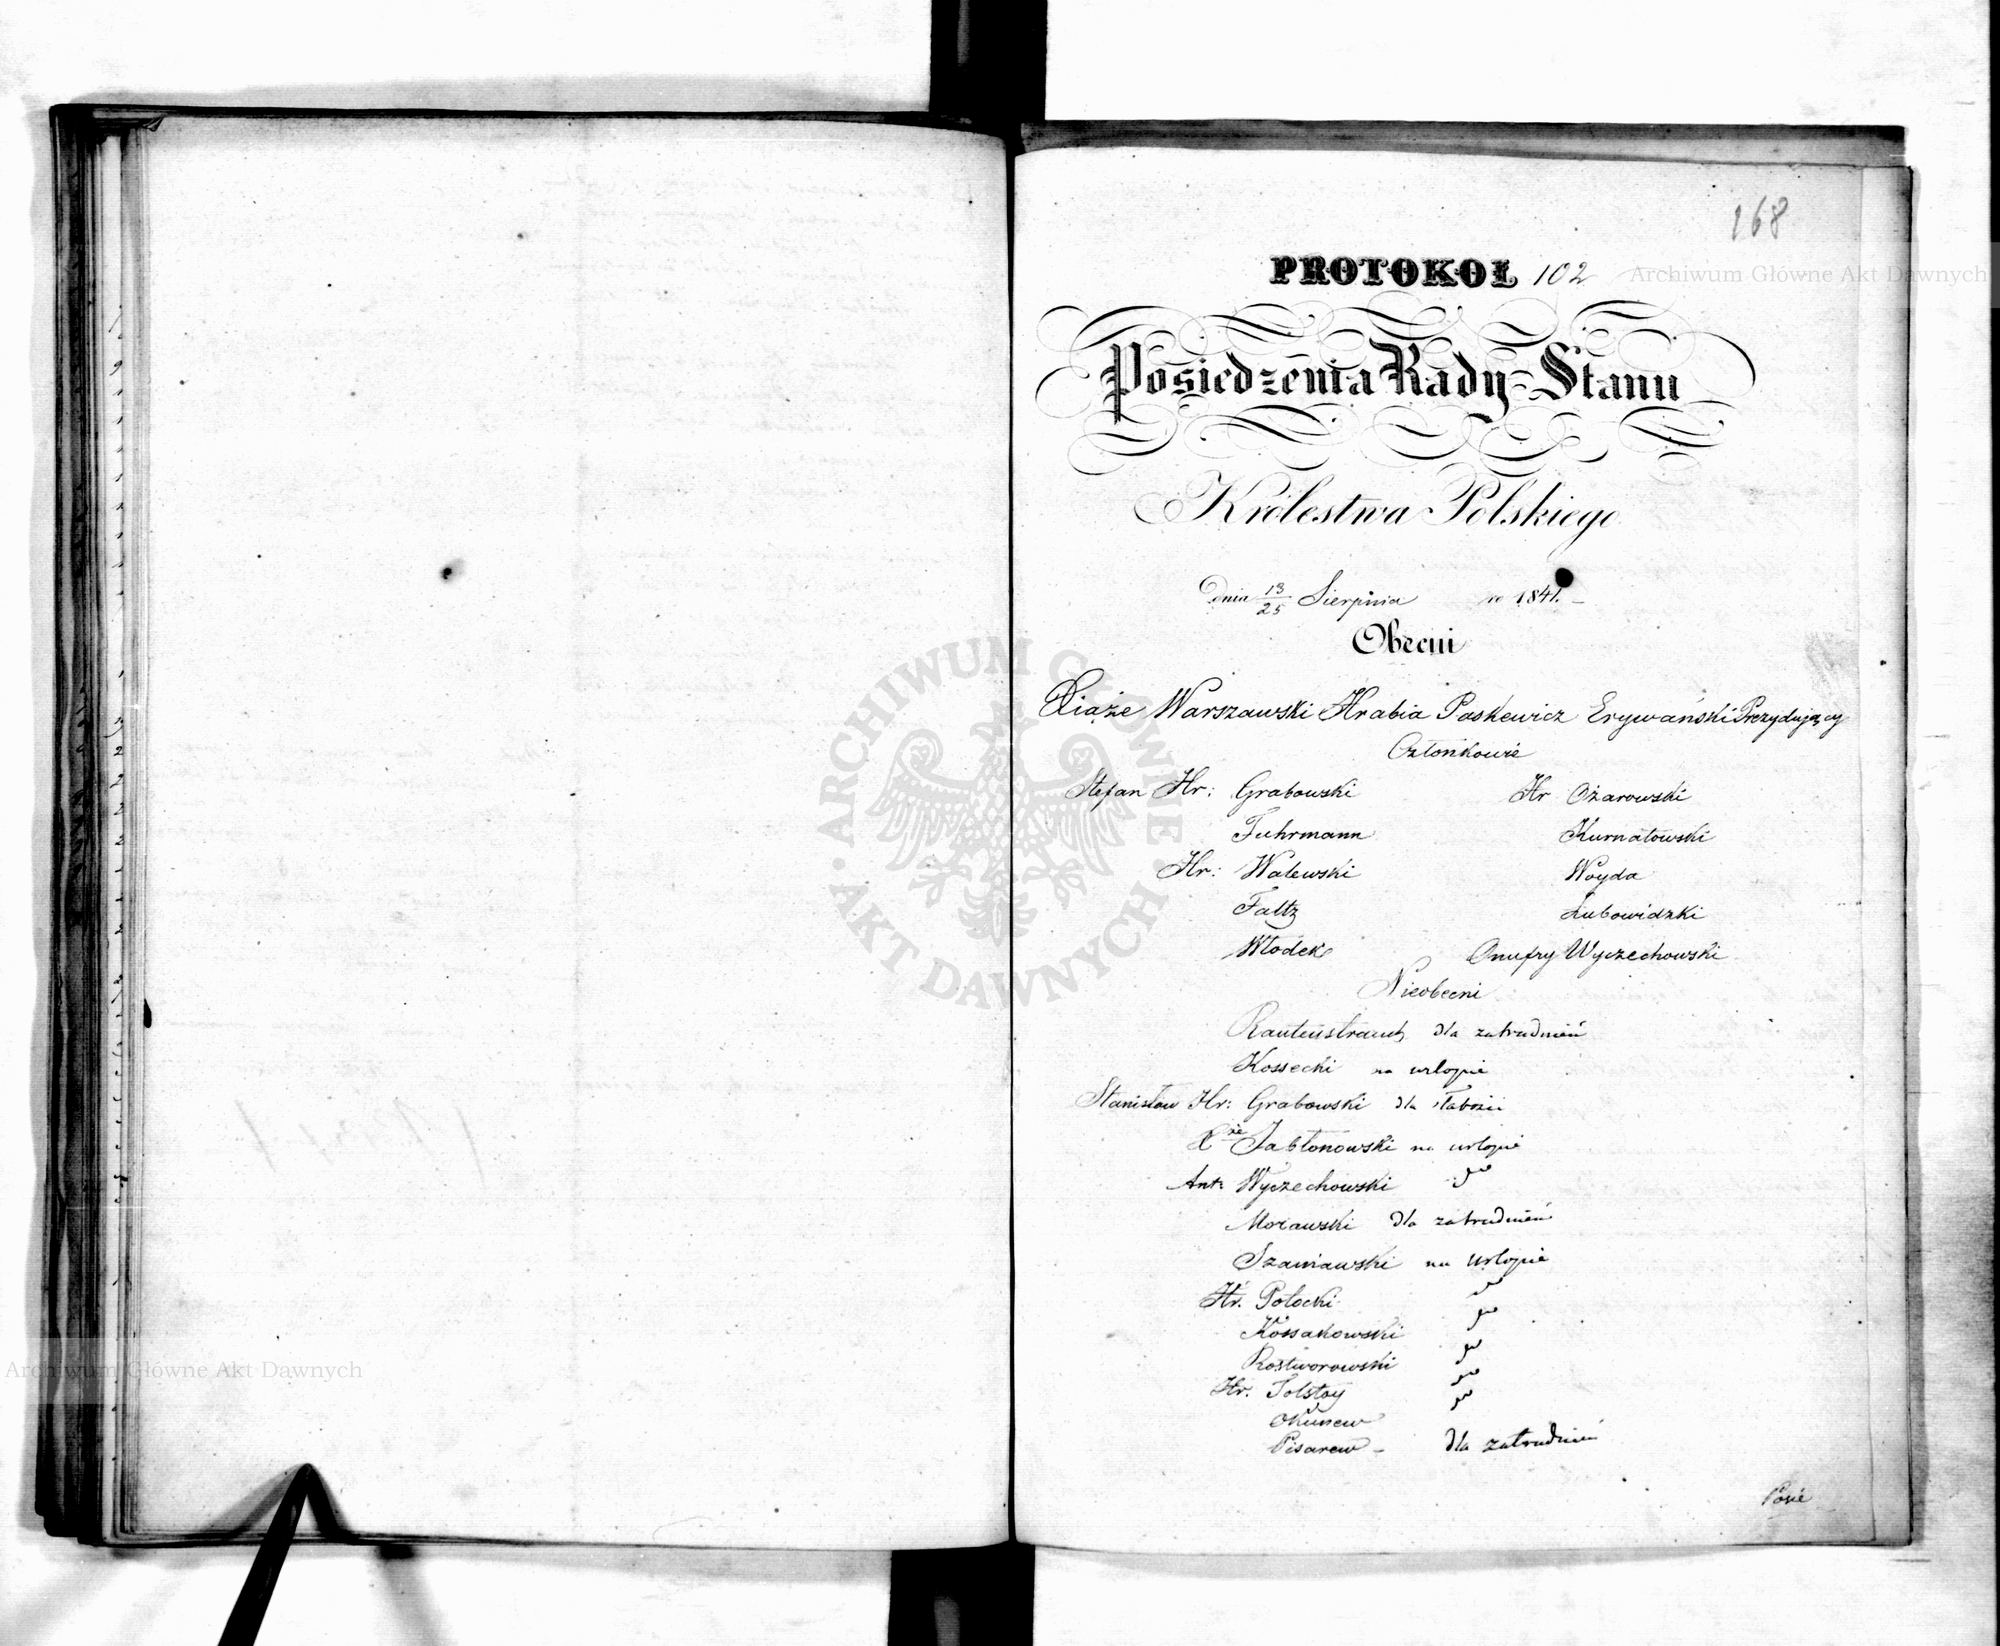 168
PROTOKOŁ 102
Posiedzenia Rady Stanu
Królestwa Polskiego
Dnia 13/25 Sierpnia ro 1841.
Obecni
Xiąże Warszawski Hrabia Paskewicz Erywański Prezydujący
Członkowie
Stefan Hr: Grabowski Hr Ożarowski
Fuhrmann Kurnatowski
Hr: Walewski Woyda
Faltz Lubowidzki
Włodek Onufry Wyczechowski
Nieobecni
Rautenstrauch dla zatrudnień
Kossecki na urlopie
Stanisław Hr: Grabowski dla słabości
Xże Jabłonowski na urlopie
Ant: Wyczechowski
Morawski dla zatrudnień
Szaniawski na urlopie
Hr. Potocki
Kossakowski
Rostworowski
Hr. Tolstoy
Okunew
Pisarew - dla zatrudnień
Posie
Archiwum Główne Akt Dawnych
Archiwum Główne Akt Dawnych
ARCHIWUM GŁÓWNE AKT DAWNYCH